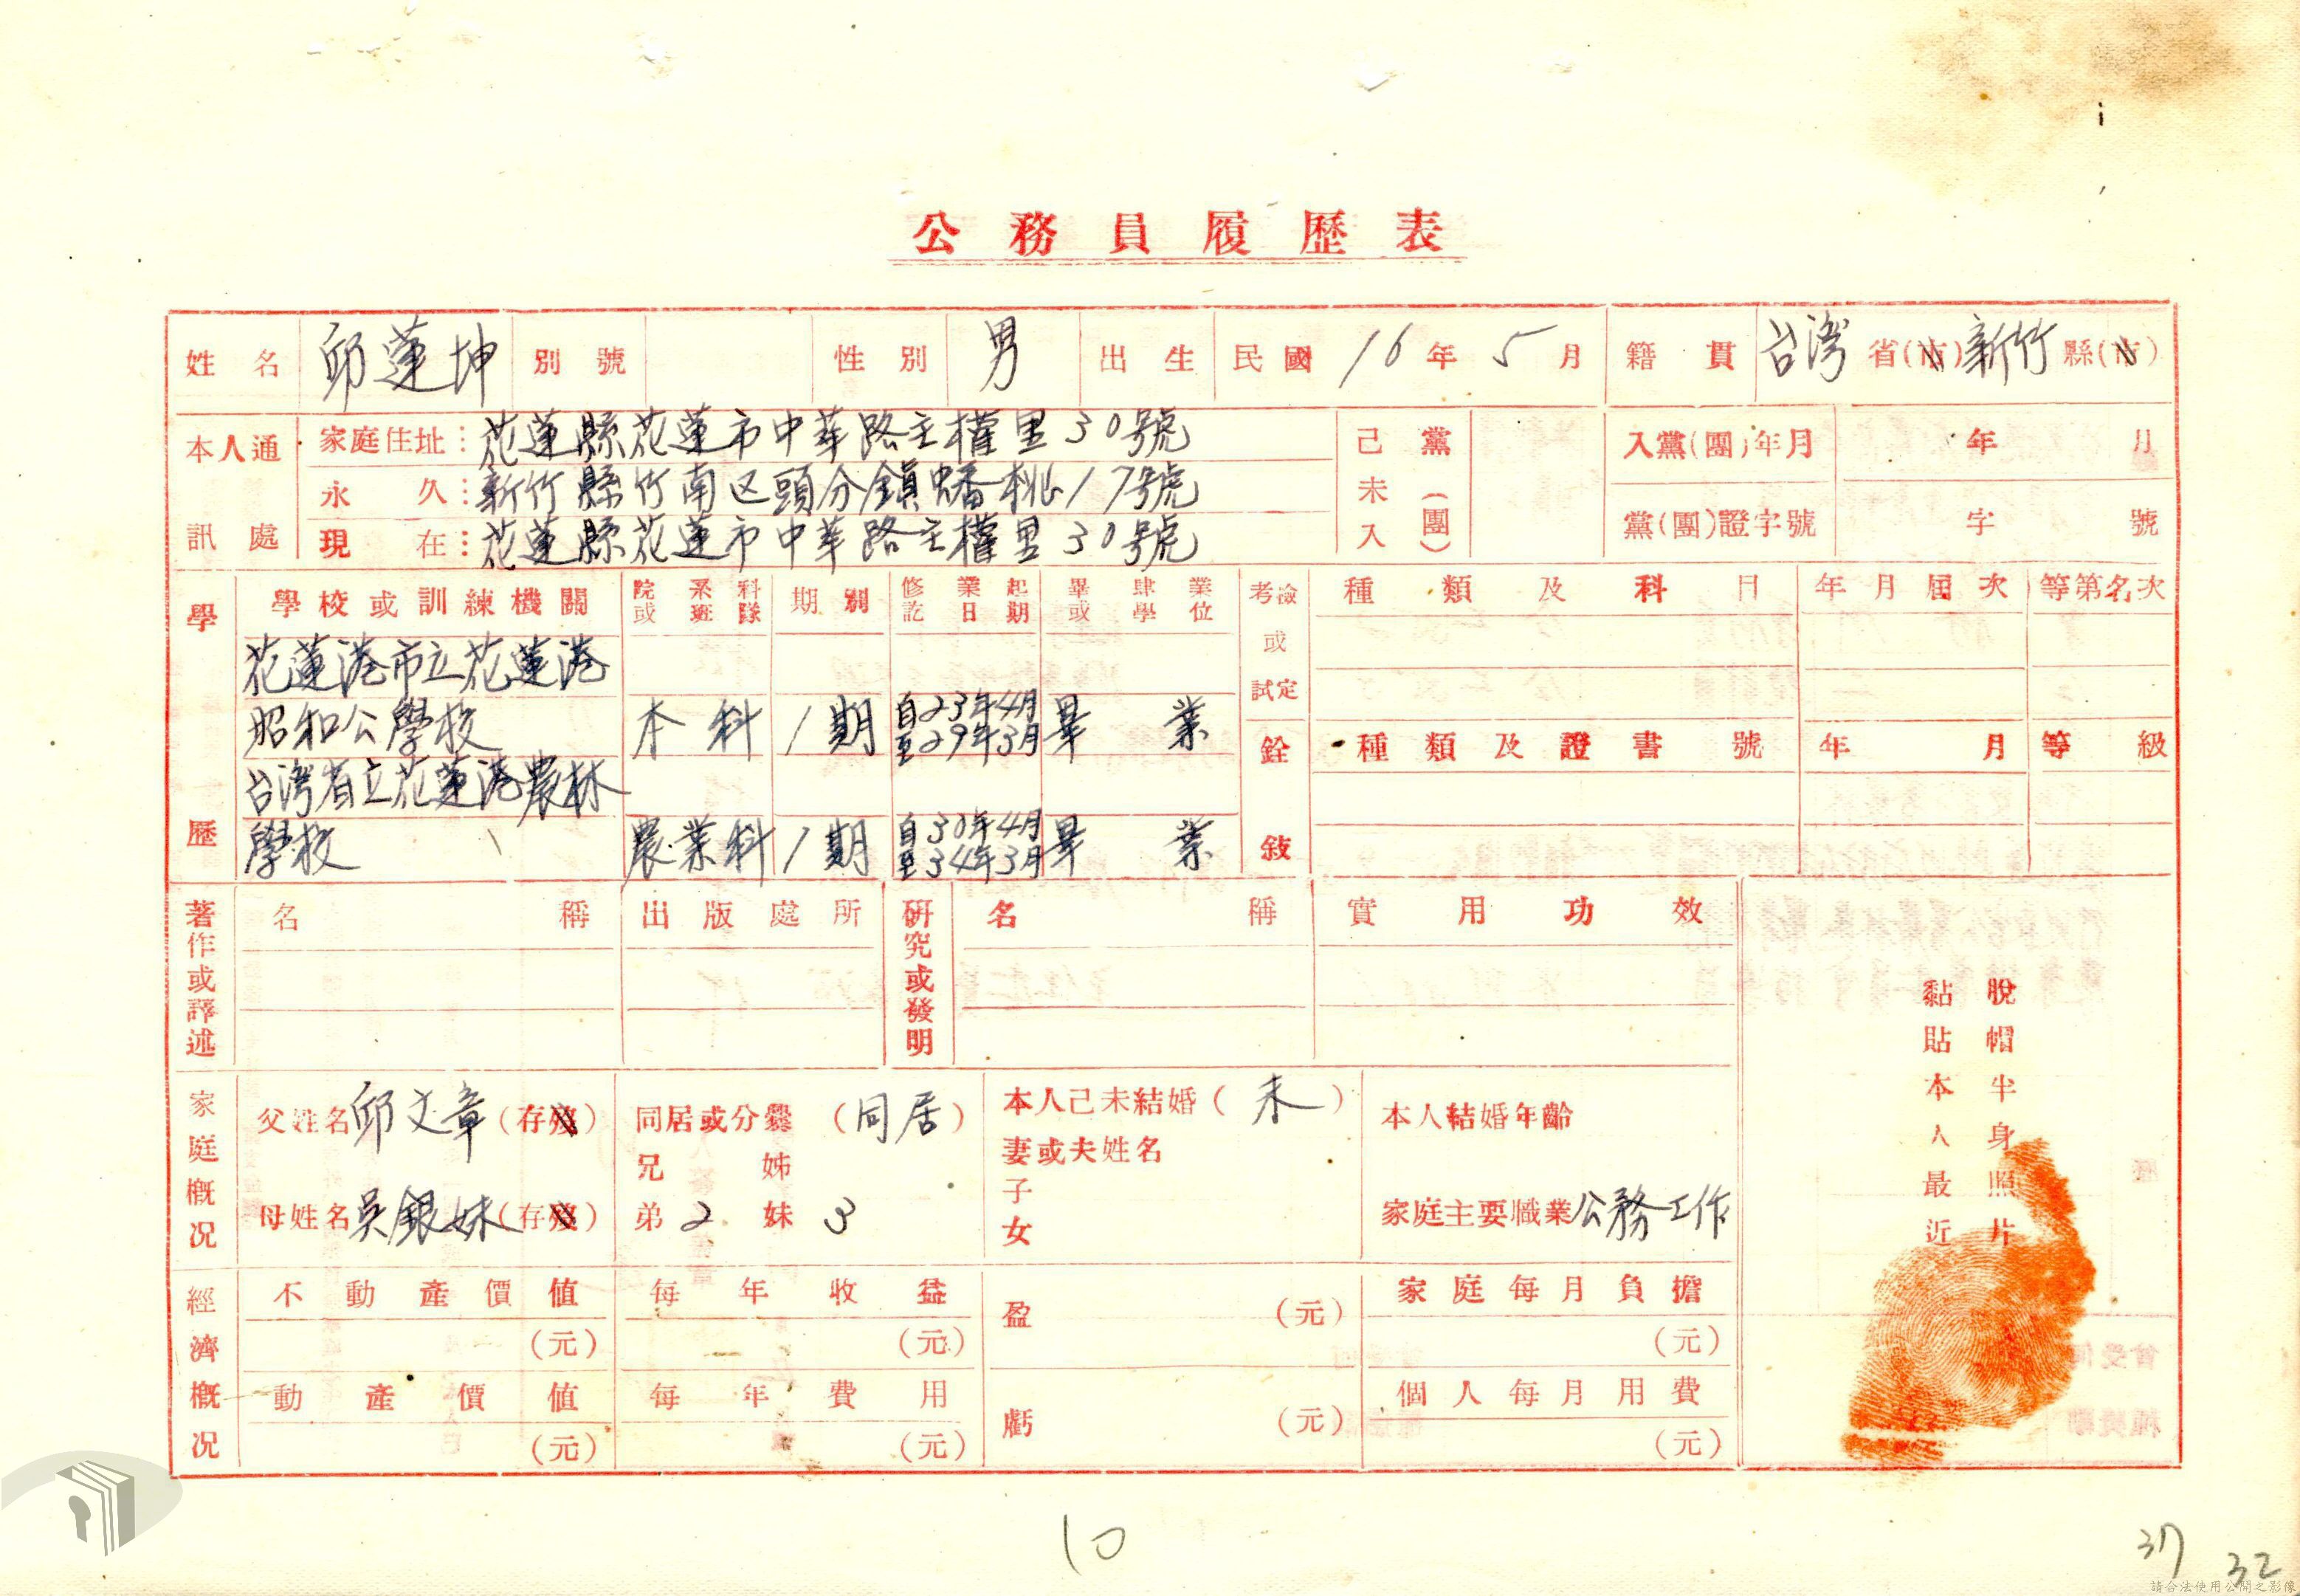 公務員履歷表
姓名 邱蓮坤 別號 性別 男 出生 民國 16年5月 籍貫 台灣省(市)新竹縣(市)
本人通訊處
家庭住址：花蓮縣花蓮市中華路主權里30號
永久：新竹縣竹南区頭分鎮蟠桃17號
現在：花蓮縣花蓮市中華路主權里30號
己未入黨(團)
入黨(團)年月 年 月
黨(團)證字號 字 號
學歷
學校或訓練機關 院系科或班隊 期別 修業起訖日期 畢肄業或學位
花蓮港市立花蓮港
昭和公學校 本科 1期 自23年4月至29年3月 畢業
台灣省立花蓮港農林
學校 農業科 1期 自30年4月至34年3月 畢業
考檢或試定 種類及科目 年月屆次 等第名次
銓敍 種類及證書號 年月 等級
著作或譯述 名稱 出版處所
研究或發明 名稱 實用功效
家庭概況
父姓名 邱文章(存歿) 同居或分爨(同居) 本人己未結婚(未) 本人結婚年齡
兄 姊 妻或夫姓名
母姓名 吳銀妹(存歿) 弟2 妹3 子女 家庭主要職業 公務工作
經濟概況
不動產價值 每年收益 盈(元) 家庭每月負擔
(元) (元) (元)
動產價值 每年費用 虧(元) 個人每月用費
(元) (元) (元)
脫帽半身照片
黏貼本人最近
10
37
32
請合法使用公開之影像